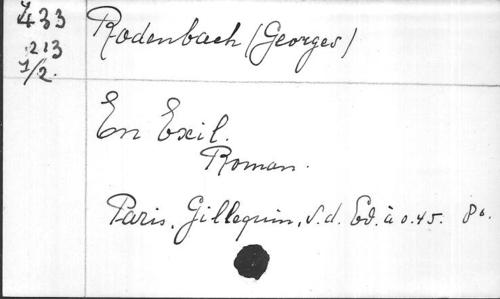 433
Rodenbach (Georges)
213
1/2.
En Exil.
Roman.
Paris, Gillequin, S.d. Ed. à 0.45. 8o.